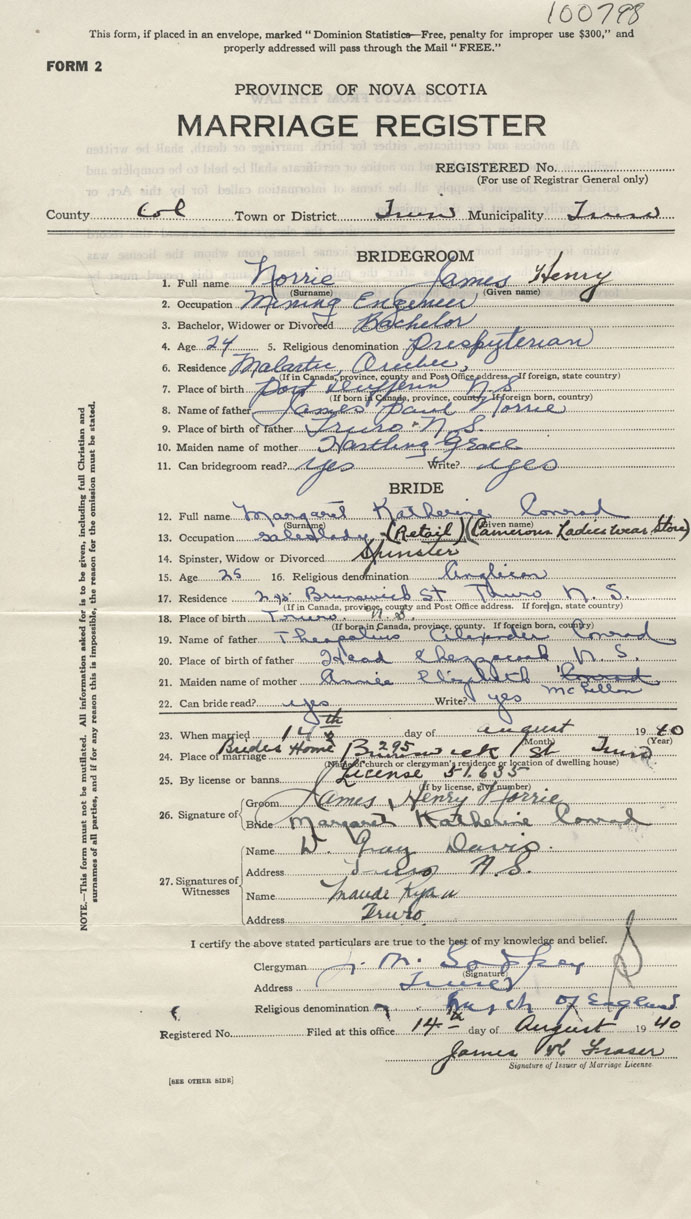 100798
This form, if placed in an envelope, marked "Dominion Statistics—Free, penalty for improper use $300," and
properly addressed will pass through the Mail "FREE."
FORM 2
PROVINCE OF NOVA SCOTIA
MARRIAGE REGISTER
REGISTERED No.
(For use of Registrar General only)
County Col Town or District Truro Municipality Truro
BRIDEGROOM
1. Full name Norrie James Henry
(Surname) (Given name)
2. Occupation Mining Engineer
3. Bachelor, Widower or Divorced Bachelor
4. Age 24 5. Religious denomination Presbyterian
6. Residence Malartic, Quebec,
(If in Canada, province, county and Post Office address. If foreign, state country)
7. Place of birth Port Dufferin N.S
(If born in Canada, province, county. If foreign born, county)
8. Name of father James Paul Norrie
9. Place of birth of father Truro N.S.
10. Maiden name of mother Hastling Grace
11. Can bridegroom read? yes Write? yes
BRIDE
12. Full name Margaret Katherine Conrad
(Surname) (Given name)
13. Occupation saleslady (Retail) (Camerons Ladies wear Store)
14. Spinster, Widow or Divorced Spinster
15. Age 25 16. Religious denomination Anglican
17. Residence 295 Brunswick St Truro N. S.
(If in Canada, province, county and Post Office address. If foreign, state country)
18. Place of birth Truro N.S.
(If born in Canada, province, county. If foreign born, county)
19. Name of father Alexander Conrad
20. Place of birth of father Head N. S
21. Maiden name of mother Annie Elizabeth Conrad
22. Can bride read? yes Write? yes
23. When married 14th day of August 1940
(Month) (Year)
24. Place of marriage Brides Home 295 Brunswick St Truro
(Name of church or clergyman's residence or location of dwelling house)
25. By license or banns License 51,635
(If by license, give number)
26. Signature of
Groom James Henry Norrie
Bride Margaret Katherine Conrad
27. Signatures of Witnesses
Name W. Gray Davis
Address Truro N.S.
Name Maude Ryan
Address Truro
I certify the above stated particulars are true to the best of my knowledge and belief.
Clergyman J. M.
(Signature)
Address Truro
Religious denomination Church of England
Registered No. Filed at this office 14th day of August 1940
James Fraser
Signature of Issuer of Marriage License
[SEE OTHER SIDE]
NOTE.—This form must not be mutilated. All information asked for is to be given, including full Christian and
surnames of all parties, and if for any reason this is impossible, the reason for the omission must be stated.